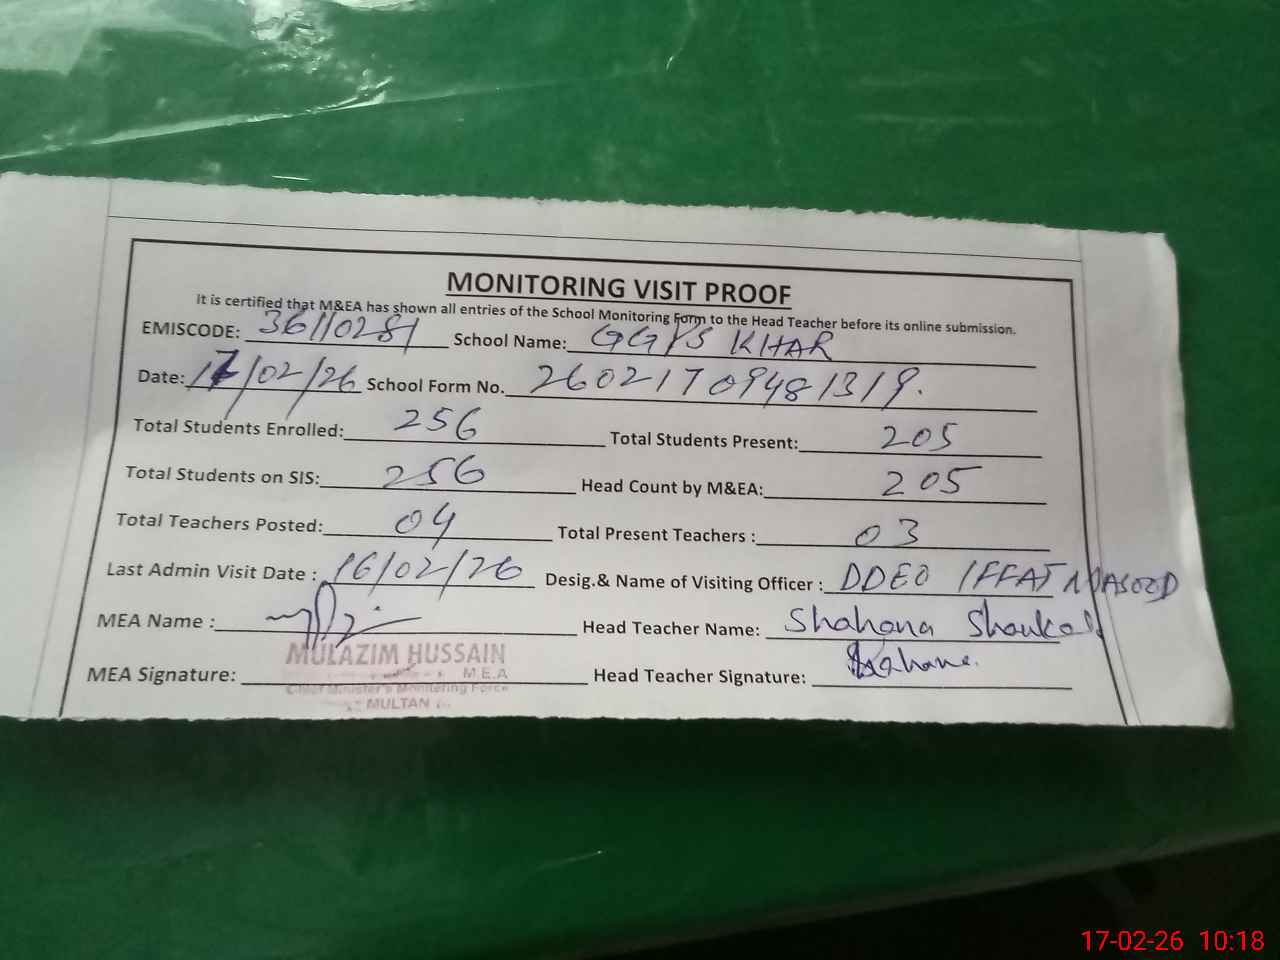 MONITORING VISIT PROOF
It is certified that M&EA has shown all entries of the School Monitoring Form to the Head Teacher before its online submission.
EMISCODE: 36110281 School Name: GGPS KHAR
Date: 17/02/26 School Form No. 26021709481319.
Total Students Enrolled: 256 Total Students Present: 205
Total Students on SIS: 256 Head Count by M&EA: 205
Total Teachers Posted: 04 Total Present Teachers : 03
Last Admin Visit Date : 16/02/26 Desig.& Name of Visiting Officer : DDEO IFFAT MASOOD
MEA Name : Head Teacher Name: Shahana Shaukat
MULAZIM HUSSAIN
M.E.A
MEA Signature: Head Teacher Signature: Shahana.
Chief Minister's Monitoring Force
MULTAN
17-02-26 10:18